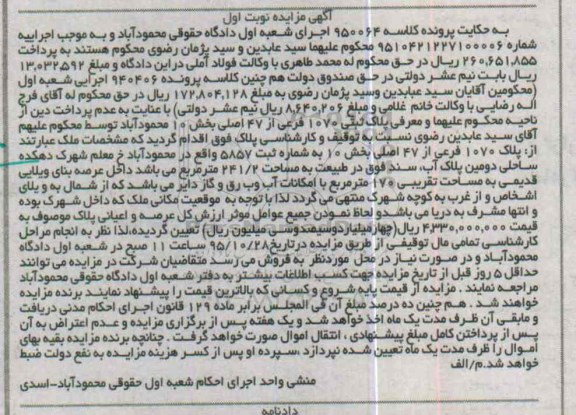 آگهی مزایده نوبت اول
به حکایت پرونده کلاسه ۹۵۰۰۶۴ اجرای شعبه اول دادگاه حقوقی محمودآباد و به موجب اجراییه
شماره ۹۵۱۰۴۲۱۲۲۷۱۰۰۰۰۶ محکوم علیهما سید عابدین و سید پژمان رضوی محکوم هستند به پرداخت
۲۶۰,۶۵۱,۸۵۵ ریال در حق محکوم له محمد طاهری با وکالت فولاد آملی در این دادگاه و مبلغ ۱۳,۰۳۲,۵۹۲
ریال بابت نیم عشر دولتی در حق صندوق دولت هم چنین کلاسه پرونده ۹۴۰۴۰۶ اجرایی شعبه اول
(محکومین آقایان سید عبابدین وسید پژمان رضوی به مبلغ ۱۷۲,۸۰۴,۱۲۸ ریال در حق محکوم له آقای فرج
اله رضایی با وکالت خانم غلامی و مبلغ ۸,۶۴۰,۲۰۶ ریال نیم عشر دولتی) با عنایت به عدم پرداخت دین از
ناحیه محکوم علیهما و معرفی پلاک ثبتی ۱۰۷۰ فرعی از ۴۷ اصلی بخش ۱۰ محمودآباد توسط محکوم علیهم
آقای سید عابدین رضوی نسبت به توقیف و کارشناسی پلاک فوق اقدام گردید که مشخصات ملک عبارتند
از: پلاک ۱۰۷۰ فرعی از ۴۷ اصلی بخش ۱۰ به شماره ثبت ۵۸۵۷ واقع در محمودآباد خ معلم شهرک دهکده
ساحلی دومین پلاک آب، سند فوق در طبیعت به مساحت ۲۴۱/۲ مترمربع می باشد داخل عرصه بنای ویلایی
قدیمی به مساحت تقریبی ۱۷۰ مترمربع با امکانات آب وب رق و گاز دایر می باشد که از شمال به و یلای
اشخاص و از غرب به کوچه شهرک منتهی می گردد لذا با توجه به موقعیت مکانی ملک که داخل شهرک بوده
و انتها مشرف به دریا می باشدو لحاظ نمودن جمیع عوامل موثر ارزش کل عرصه و اعیانی پلاک موصوف به
قیمت ۴,۳۳۰,۰۰۰,۰۰۰ ریال(چهارمیلیاردوسیصدوسی میلیون ریال) تعیین گردیده،لذا نظر به انجام مراحل
کارشناسی تمامی مال توقیفی از طریق مزایده درتاریخ ۹۵/۱۰/۲۸ ساعت ۱۱ صبح در شعبه اول دادگاه
محمودآباد و در صورت نیاز در محل موردنظر به فروش می رسد متقاضیان شرکت در مزایده می توانند
حداقل ۵ روز قبل از تاریخ مزایده جهت کسب اطلاعات بیشتر به دفتر شعبه اول دادگاه حقوقی محمودآباد
مراجعه نمایند . مزایده از قیمت پایه شروع و کسانی که بالاترین قیمت را پیشنهاد نمایند برنده مزایده
خواهند شد . هم چنین ده درصد مبلغ آن فی المجلس برابر ماده ۱۲۹ قانون اجرای احکام مدنی دریافت
و مابقی آن ظرف مدت یک ماه اخذ خواهد شد و یک هفته پس از برگزاری مزایده و عدم اعتراض به آن
پس از پرداختن کامل مبلغ پیشنهادی ، انتقال اموال صورت خواهد گرفت . چنانچه برنده مزایده بقیه بهای
اموال را ظرف مدت یک ماه تعیین شده نپردازد ،سپرده او پس از کسر هزینه مزایده به نفع دولت ضبط
خواهد شد.م/الف
منشی واحد اجرای احکام شعبه اول حقوقی محمودآباد-اسدی
دادنامه